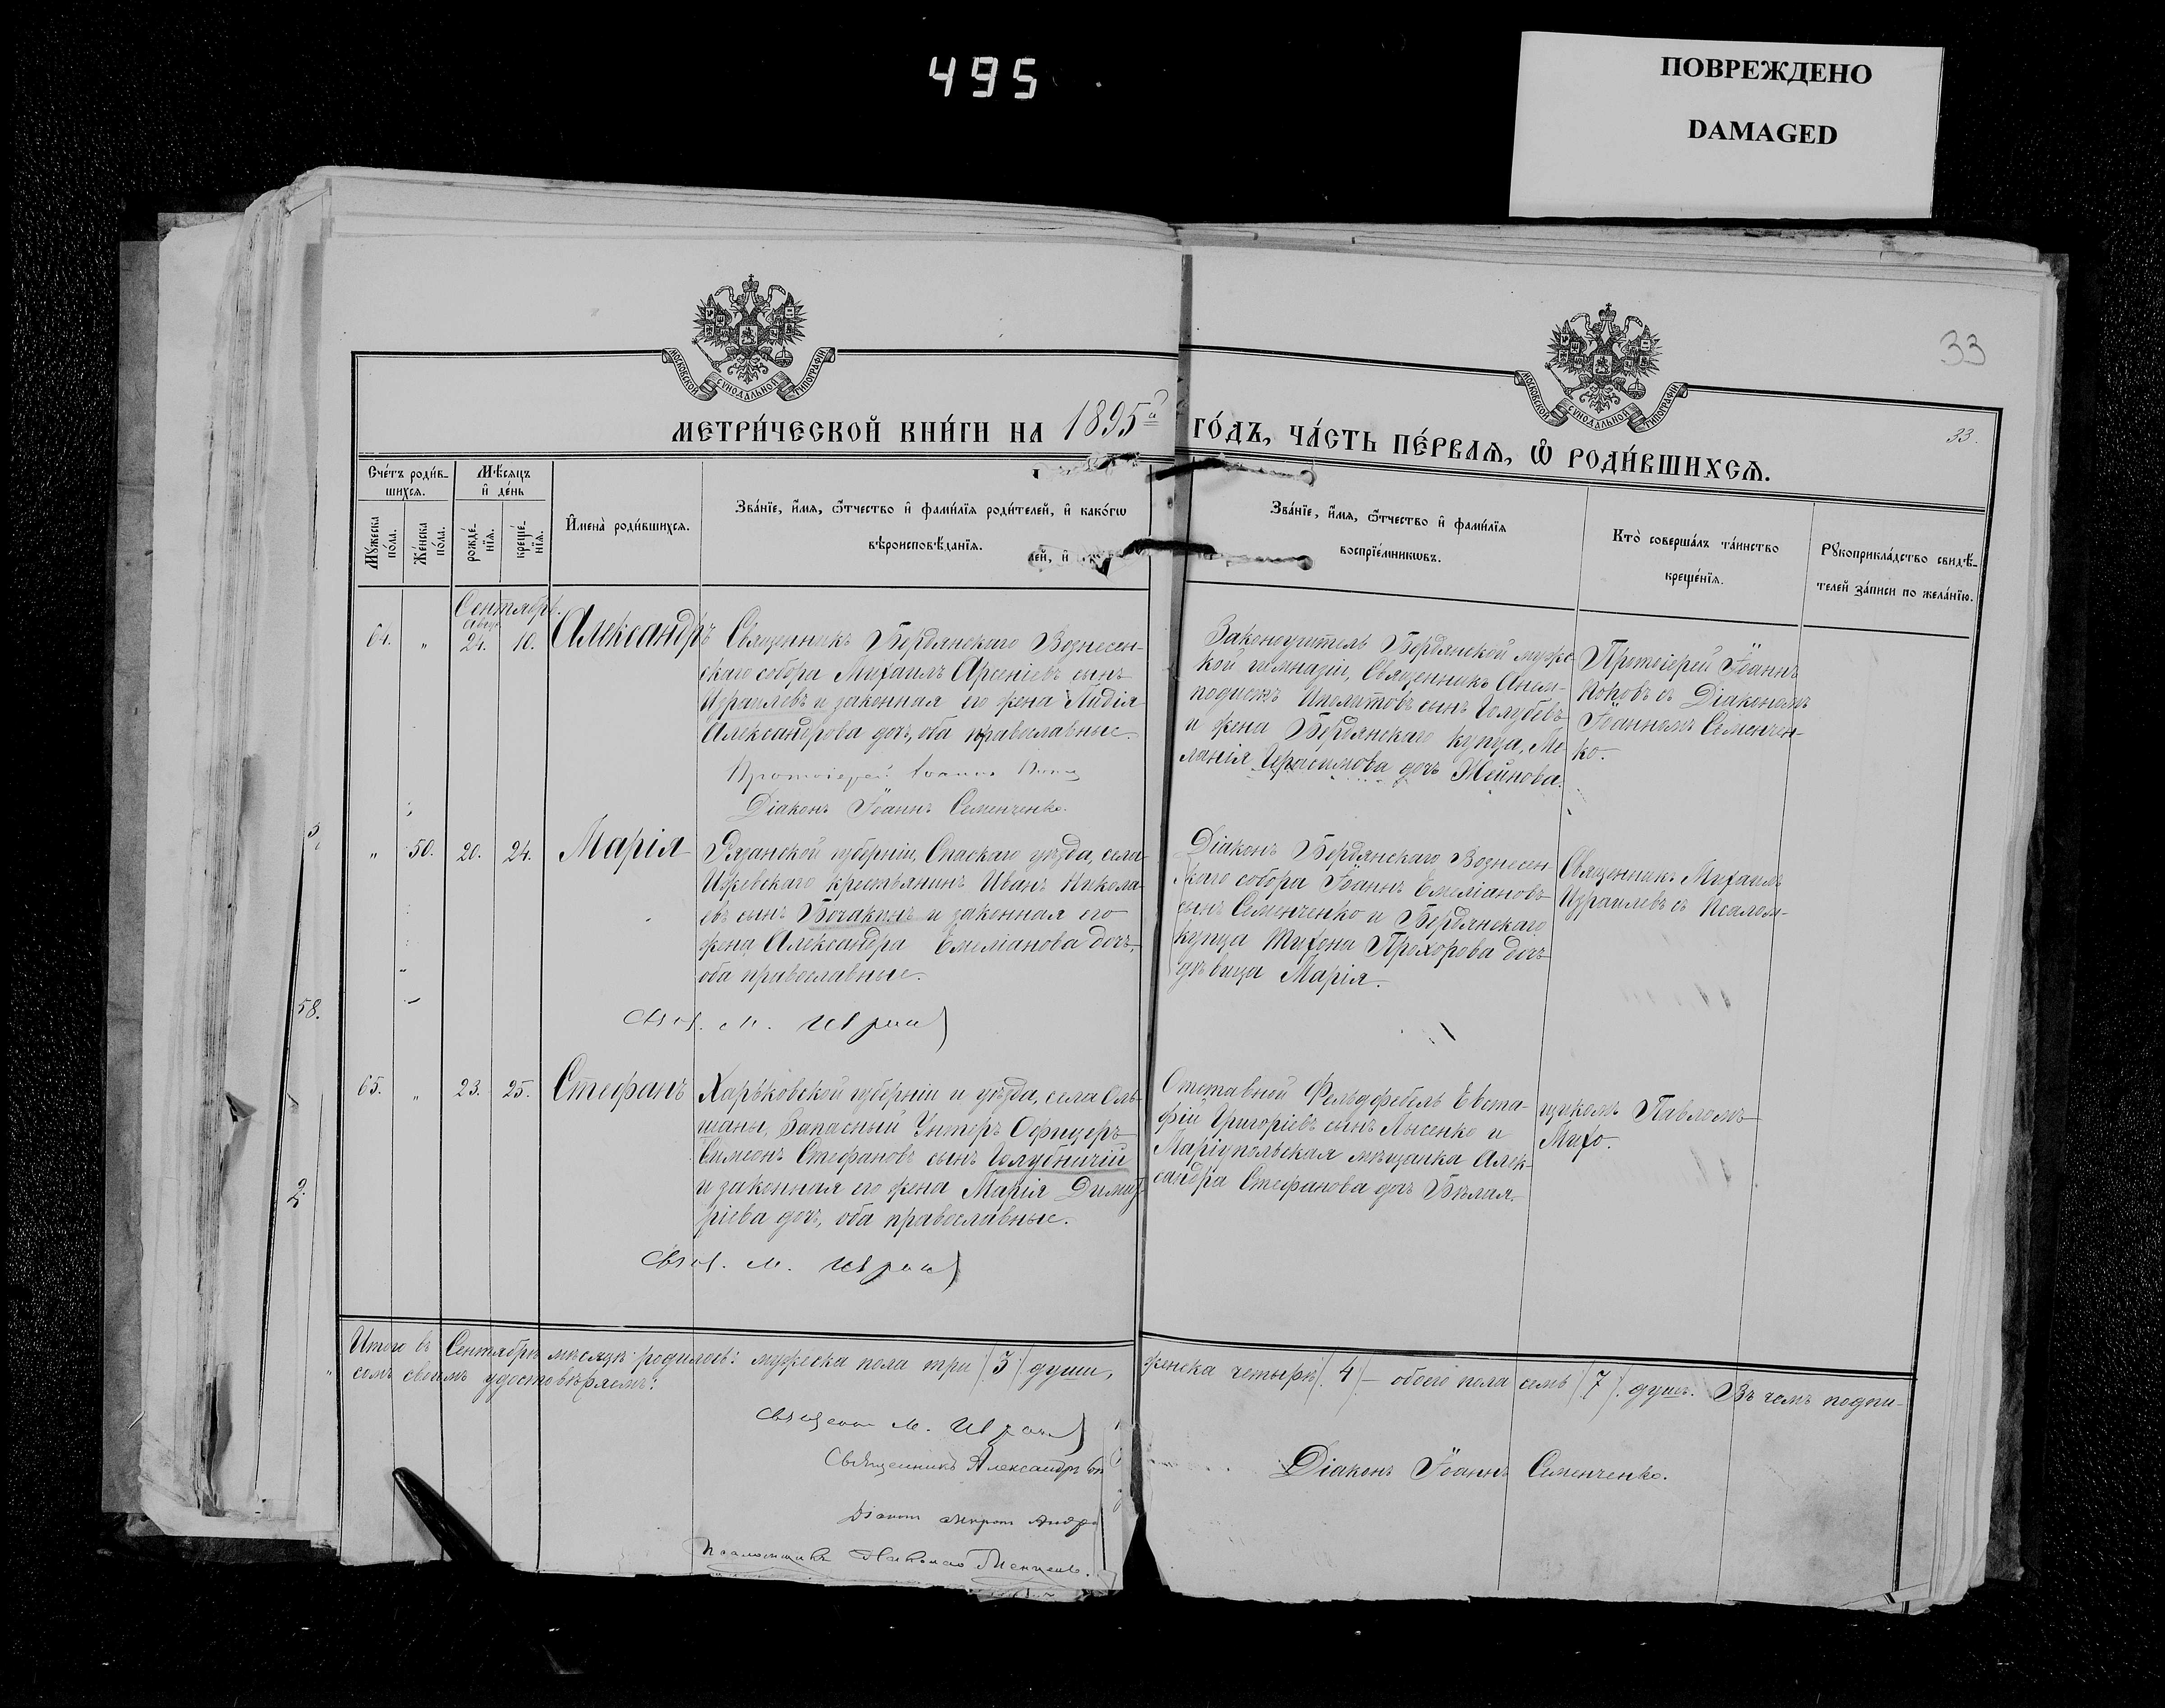 495
ПОВРЕЖДЕНО
DAMAGED
МОСКОВСКОЙ СѴНОДАЛЬНОЙ ТИПОГРАФІИ
МОСКОВСКОЙ СѴНОДАЛЬНОЙ ТИПОГРАФІИ
33
33.
МЕТРИ́ЧЕСКОЙ КНИ́ГИ НА 1895й ГО́ДЪ, ЧА́СТЬ ПЕ́РВАѦ, Ѡ РОДИ́ВШИХСѦ.
Сче́тъ роди́в-
шихсѧ.
Мѣ́сѧцъ
и҆ де́нь
Мꙋ́жеска
по́ла.
Же́нска
по́ла.
рожде́-
нїѧ.
креще́-
нїѧ.
И҆мена̀ роди́вшихсѧ.
Зва́нїе, и҆́мѧ, ѻ҆́тчество и҆ фами́лїѧ роди́телей, и҆ како́гѡ
вѣроисповѣ́данїѧ.
лей, и҆
Зва́нїе, и҆́мѧ, ѻ҆́тчество и҆ фами́лїѧ
воспрїе́мникѡвъ.
Кто̀ соверша́лъ та́инство
креще́нїѧ.
Рꙋкоприкла́дство свидѣ́-
телей за́писи по жела́нїю.
Сентябрь.
64. " 24. 10. Александръ
Священникъ Бердянскаго Вознесен-
скаго собора Михаилъ Арсеніевъ сынъ
Израилевъ и законная его жена Лидія
Александрова дочь, оба православные.
Протоіерей Іоаннъ
Діаконъ Іоаннъ Семенченко.
Законоучитель Бердянской мужс-
кой гимназіи, Священникъ Анем-
подистъ Иполитовъ сынъ Голубевъ
и жена Бердянскаго купца, Ме-
ланія Герасимова дочь Жейнова.
Протоіерей Іоаннъ
Поповъ съ Діакономъ
Іоанномъ Семенчен-
ко.
" 50. 20. 24. Марія
Рязанской губерніи, Спаскаго уѣзда, села
Ижевскаго крестьянинъ Иванъ Никола-
евъ сынъ Бочакинъ и законная его
жена Александра Емеліанова дочь,
оба православные.
Свящ. М. Изра
Діаконъ Бердянскаго Вознесен-
скаго собора Іоаннъ Емеліановъ
сынъ Семенченко и Бердянскаго
купца Тихона Прохорова дочь
дѣвица Марія.
Священникъ Михаилъ
Израилевъ съ Псалом-
58.
2.
65. " 23. 25. Стефанъ
Харьковской губерніи и уѣзда, села Оль-
шаны, Запасный Унтеръ Офицеръ
Симеонъ Стефановъ сынъ Голубничій
и законная его жена Марія Димит-
ріева дочь, оба православные.
Свящ. М. Изра
Отставной Фельдфебель Евста-
фій Григоріевъ сынъ Лысенко и
Маріупольская мѣщанка Алек-
сандра Стефанова дочь Бѣлая.
щикомъ Павломъ
Тихо.
Итого въ Сентябрѣ мѣсяцѣ родилось: мужеска пола три /3/ души, женска четыре /4/ — обоего пола семь /7/ душъ. Въ чемъ подпи-
сомъ своимъ удостовѣряемъ:
Священ М. Изра
Священникъ Александръ
Діаконъ Андре
Псаломщикъ
Діаконъ Іоаннъ Семенченко.